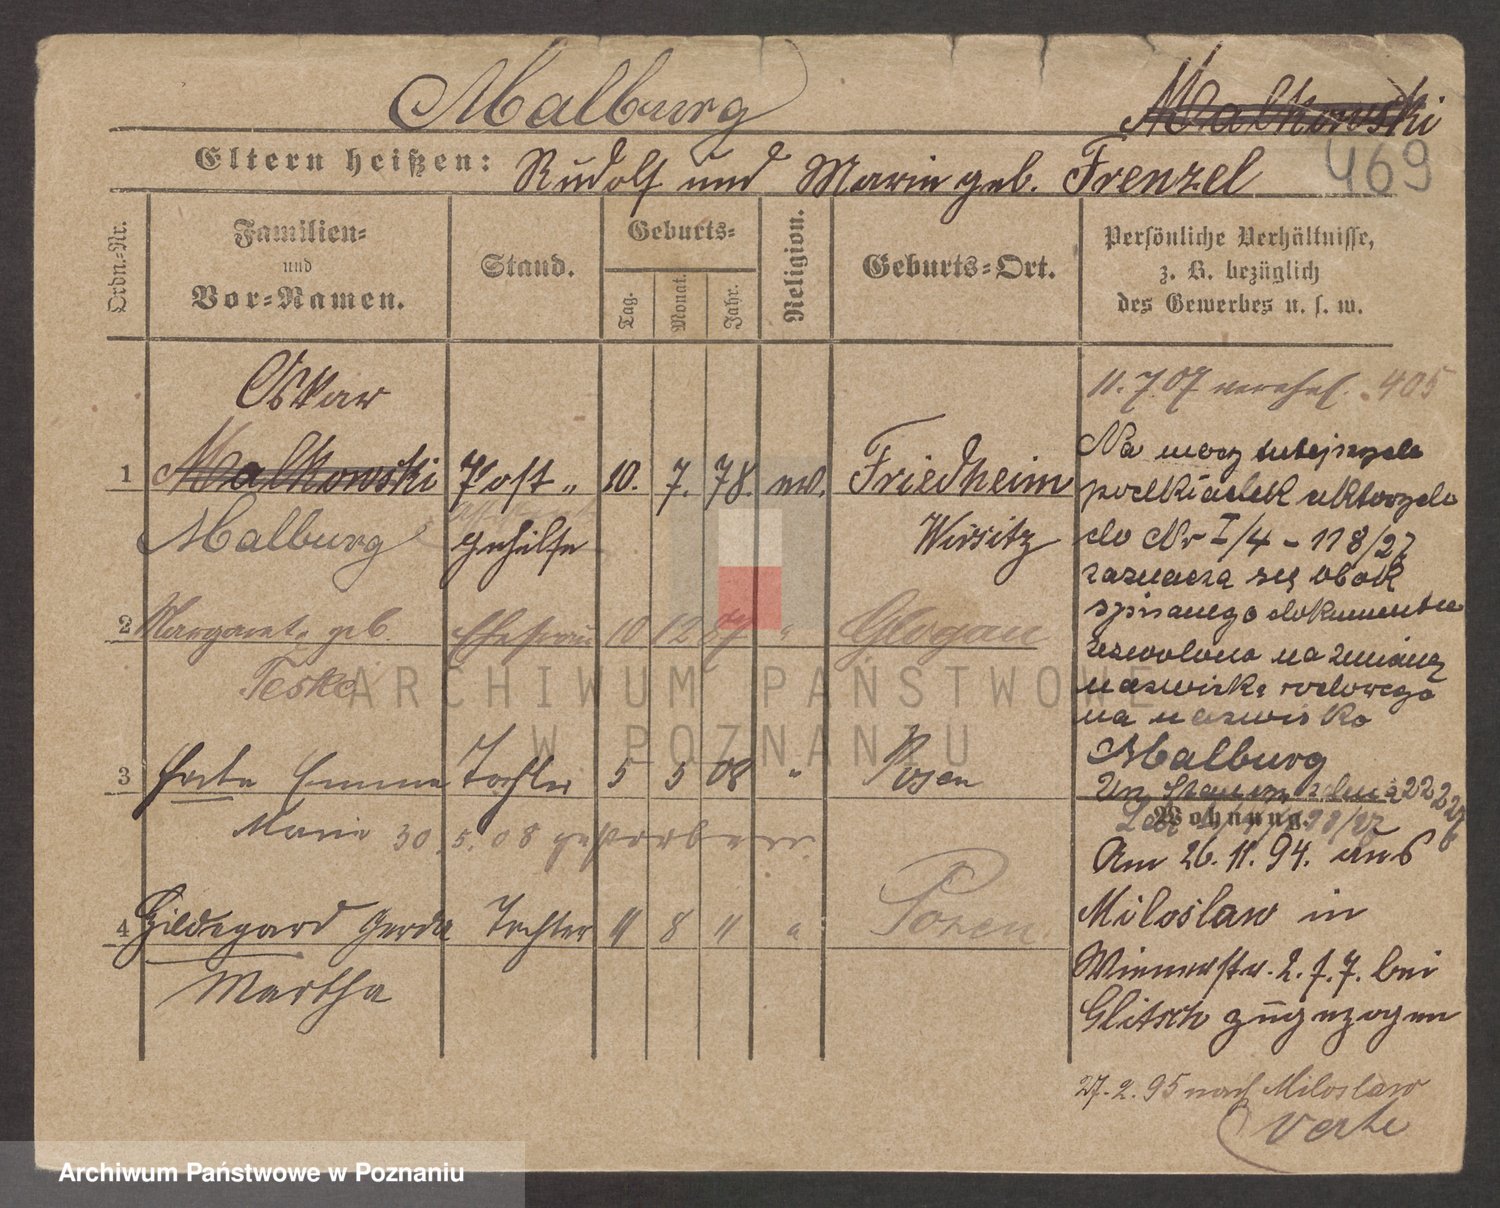 Malburg
Malkowski
469
Eltern heißen: Rudolf und Marie geb. Frenzel
Ordn.-Nr.
Familien-
und
Vor-Namen.
Stand.
Geburts-
Tag.
Monat.
Jahr.
Religion.
Geburts-Ort.
Persönliche Verhältnisse,
z. B. bezüglich
des Gewerbes u. s. w.
11.7.07 verehel. 405
Oskar
1 Malkowski Post- 10. 7. 78. ev. Friedheim
Malburg gehilfe Wirsitz
2 Margarete geb. Ehefrau 10 12 87 " Glogau
Teske
3 Emma Tochter 5 5 08 " Posen
Marie 30.5.08 gestorben
4 Hildegard Gerda Tochter 11 8 11 " Posen
Martha
Na mocy tutejszych
podkładek
do Nr I/4 - 118/27
zaznacza się obok
spisanego dokumentu
zezwolono na zmianę
nazwiska rodowego
na nazwisko
Malburg
Wohnung.
Am 26.11.94. aus
Miloslaw in
Wienerstr. 2. J. 7. bei
Glitsch zugezogen
27.2.95 nach Miloslaw
verte
ARCHIWUM PAŃSTWOWE
W POZNANIU
Archiwum Państwowe w Poznaniu